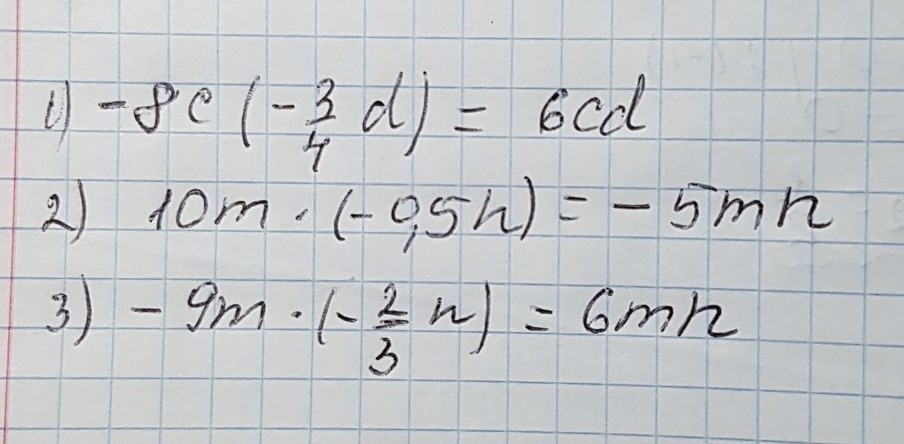 1) -8c (-3/4 d) = 6cd
2) 10m · (-0,5n) = -5mn
3) -9m · (-2/3 n) = 6mn